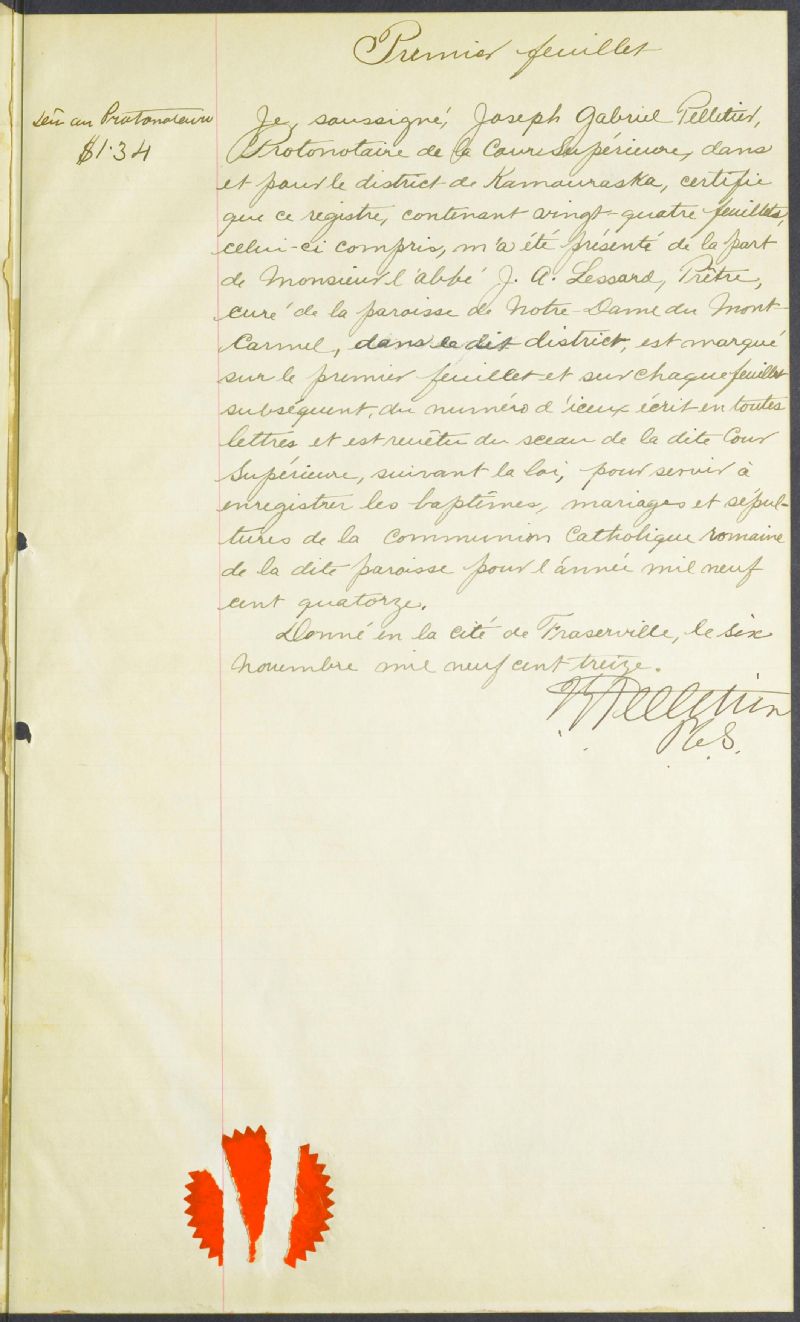 Premier feuillet
Dû au Protonotaire
$1.34
Je, soussigné, Joseph Gabriel Pelletier,
Protonotaire de la Cour Supérieure, dans
et pour le district de Kamouraska, certifie
que ce registre, contenant vingt-quatre feuillets,
celui-ci compris, m'a été présenté de la part
de Monsieur l'abbé J. A. Lessard, Prêtre,
curé de la paroisse de Notre-Dame du Mont-
Carmel, dans le dit district, est marqué
sur le premier feuillet et sur chaque feuillet
subséquent, du numéro d'iceux écrit en toutes
lettres et est revêtu du sceau de la dite Cour
Supérieure, suivant la loi, pour servir à
enregistrer les baptêmes, mariages et sépul-
tures de la Communion Catholique romaine
de la dite paroisse pour l'année mil neuf
cent quatorze.
Donné en la cité de Fraserville, le six
Novembre mil neuf cent treize.
Pelletier
P.C.S.